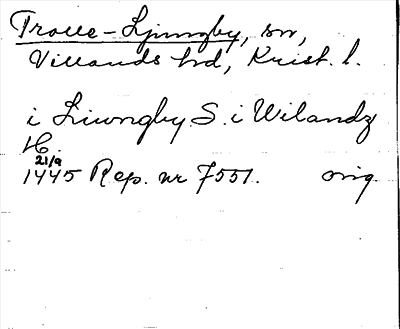 Trolle-Ljungby, sn,
Villands hd, Krist. l.
i Liwngby S. i Wilandz
H.
21/9
1445 Rep. nr 7551. orig.